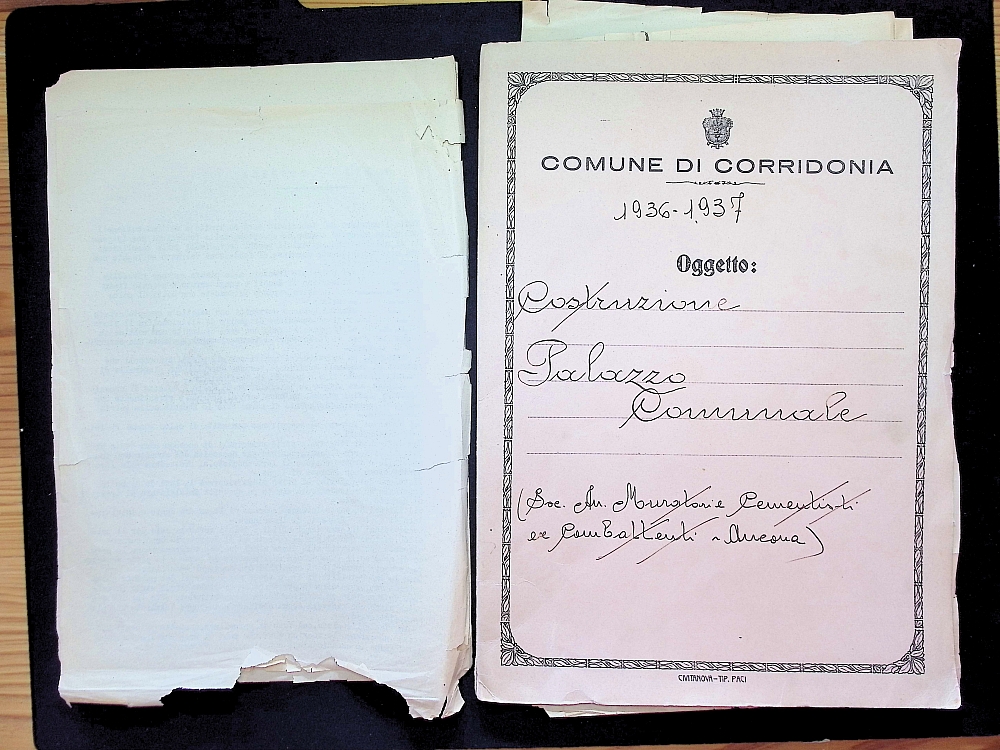 COMUNE DI CORRIDONIA
1936-1937
Oggetto:
Costruzione
Palazzo
Comunale
(Soc. An. Muratori e Cementisti
ex Combattenti - Ancona)
CIVITANOVA-TIP. PACI